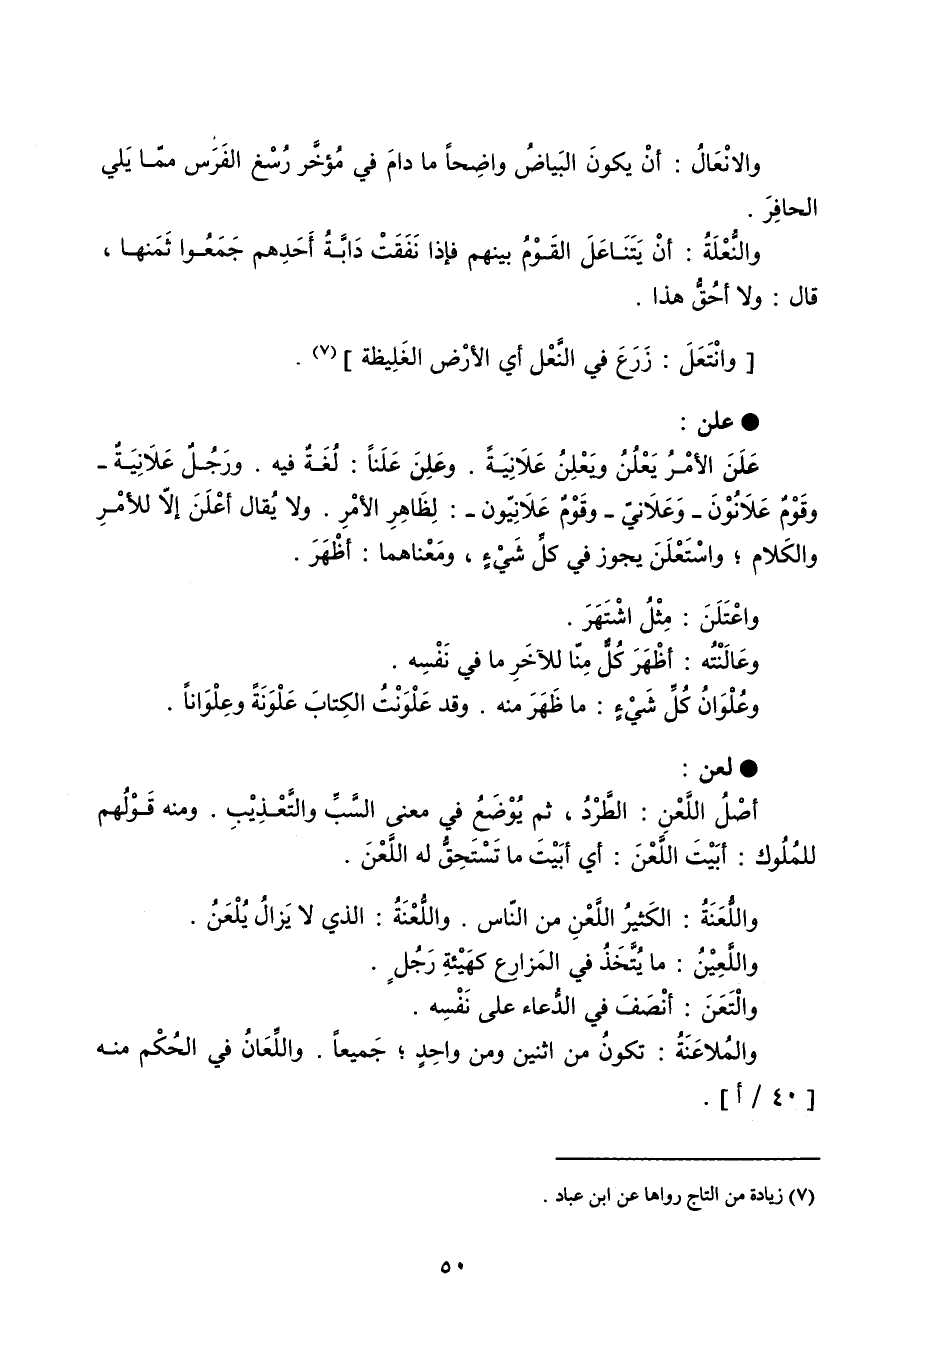 والانْعَالُ : أنْ يكونَ البَياضُ واضِحاً ما دامَ في مُؤخَّر رُسْغِ الفَرَس ممّا يَلي
الحافِرَ .
والنُّعْلَةُ : أنْ يَتَنَاعَلَ القَوْمُ بينهم فإذا نَفَقَتْ دَابَّةُ أَحَدِهم جَمَعُوا ثَمَنها ،
قال : ولا أحُقُّ هذا .
[ وانْتَعَلَ : زَرَعَ في النَّعْل أي الأرْض الغَلِيظة ] (٧) .
● علن :
عَلَنَ الأمْرُ يَعْلُنُ ويَعْلِنُ عَلَانِيَةً . وعَلِنَ عَلَناً : لُغَةٌ فيه . ورَجُلٌ عَلَانِيَةٌ -
وقَوْمٌ عَلَانُوْنَ - وَعَلَانيّ - وقَوْمٌ عَلَانِيّون - : لِظَاهِرِ الأمْرِ . ولا يُقال أعْلَنَ إلّا للأمْرِ
والكَلام ؛ واسْتَعْلَنَ يجوز في كلِّ شَيْءٍ ، ومَعْناهما : أظْهَرَ .
واعْتَلَنَ : مِثْلُ اشْتَهَرَ .
وعَالَنْتُه : أظْهَرَ كُلٌّ مِنّا للآخَرِ ما في نَفْسِه .
وعُلْوَانُ كُلِّ شَيْءٍ : ما ظَهَرَ منه . وقد عَلْوَنْتُ الكِتابَ عَلْوَنَةً وعِلْوَاناً .
● لعن :
أصْلُ اللَّعْنِ : الطَّرْدُ ، ثم يُوْضَعُ في معنى السَّبِّ والتَّعْذِيْبِ . ومنه قَوْلُهم
للمُلُوك : أبَيْتَ اللَّعْنَ : أي أبَيْتَ ما تَسْتَحِقُّ له اللَّعْنَ .
واللُّعَنَةُ : الكَثيرُ اللَّعْنِ من النّاس . واللُّعْنَةُ : الذي لا يَزالُ يُلْعَنُ .
واللَّعِيْنُ : ما يُتَّخَذُ في المَزارِع كهَيْئةِ رَجُلٍ .
والْتَعَنَ : أنْصَفَ في الدُّعاء على نَفْسِه .
والمُلاعَنَةُ : تكونُ من اثنين ومن واحِدٍ ؛ جَميعاً . واللِّعَانُ في الحُكْم منه
[ ٤٠ / أ ] .
(٧) زيادة من التاج رواها عن ابن عباد .
٥٠